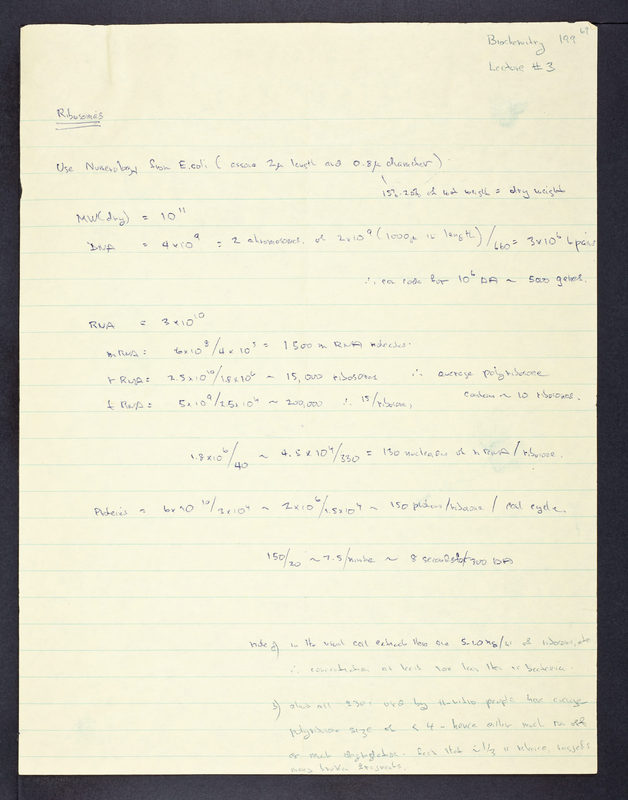 69
Biochemistry 199
Lecture #3
Ribosomes
Use Numerology from E.coli (assume 2μ length and 0.8μ diameter)
15%-20% of wet weight = dry weight
MW(dry) = 10^11
DNA = 4x10^9 = 2 chromosomes of 2x10^9 (1000μ in length)/660 = 3x10^6 b pairs
∴ can code for 10^6 AA ~ 5000 genes.
RNA = 3x10^10
mRNA = 6x10^8/4x10^5 = 1500 mRNA molecules.
rRNA = 2.5x10^10/1.8x10^6 ~ 15,000 ribosomes ∴ average polyribosome
tRNA = 5x10^9/2.5x10^4 ~ 200,000 ∴ 15/ribosome, contains ~ 10 ribosomes.
1.8x10^6/40 ~ 4.5x10^4/330 = 130 nucleotides of mRNA/ribosome.
Proteins = 6x10^10/3x10^4 ~ 2x10^6/1.5x10^4 ~ 150 proteins/ribosome/cell cycle.
150/20 ~ 7.5/minute ~ 8 seconds/300 AA
Note in the usual cell extracts there are 5-10 mg/ml of ribosomes
∴ concentration at least less than in bacteria.
by people have average
polyribosome size of < 4 - hence either much run off
or much degradation. suggests
many broken fragments.